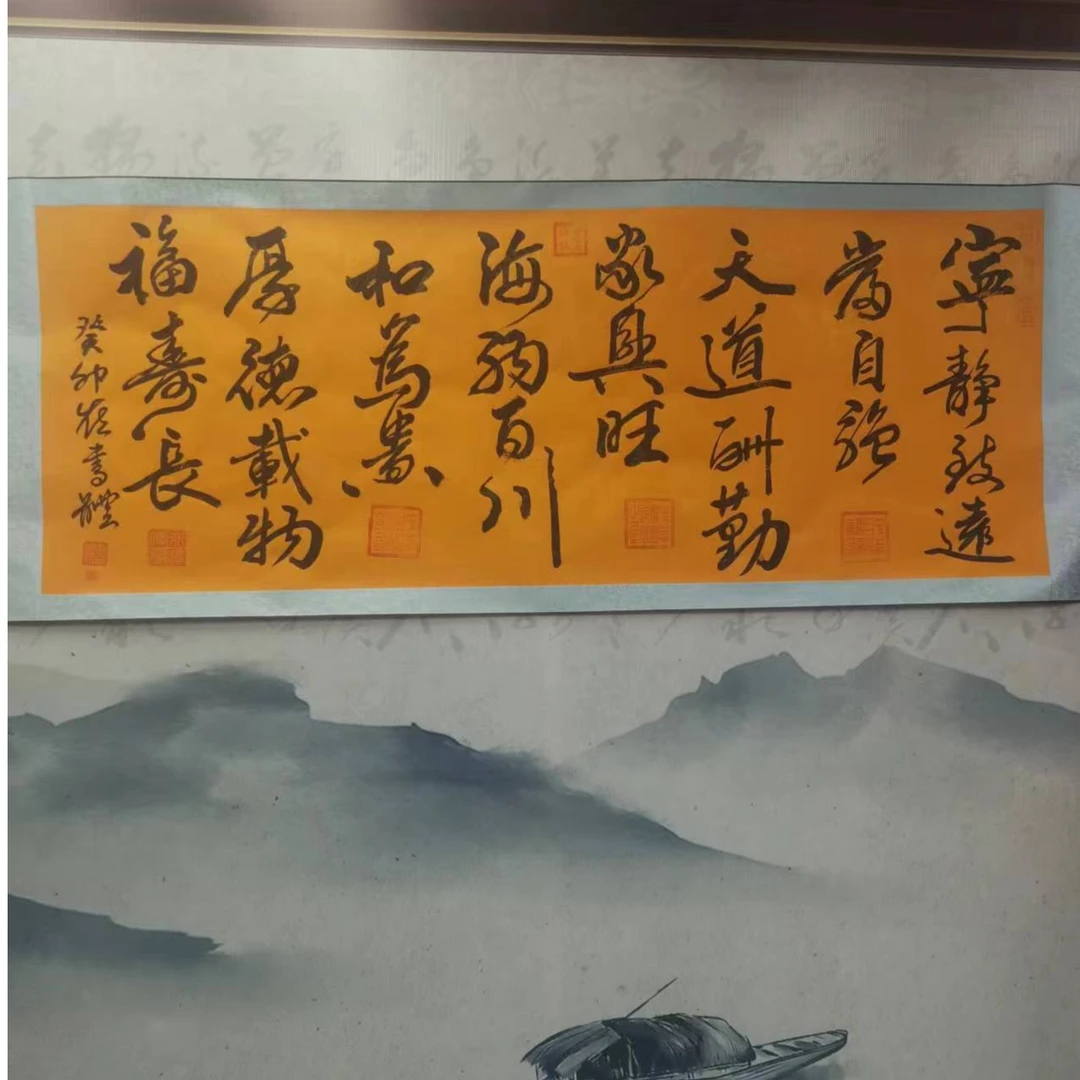 寧靜致遠
當自強
天道酬勤
家興旺
海納百川
和為貴
厚德載物
福壽長
癸卯 書